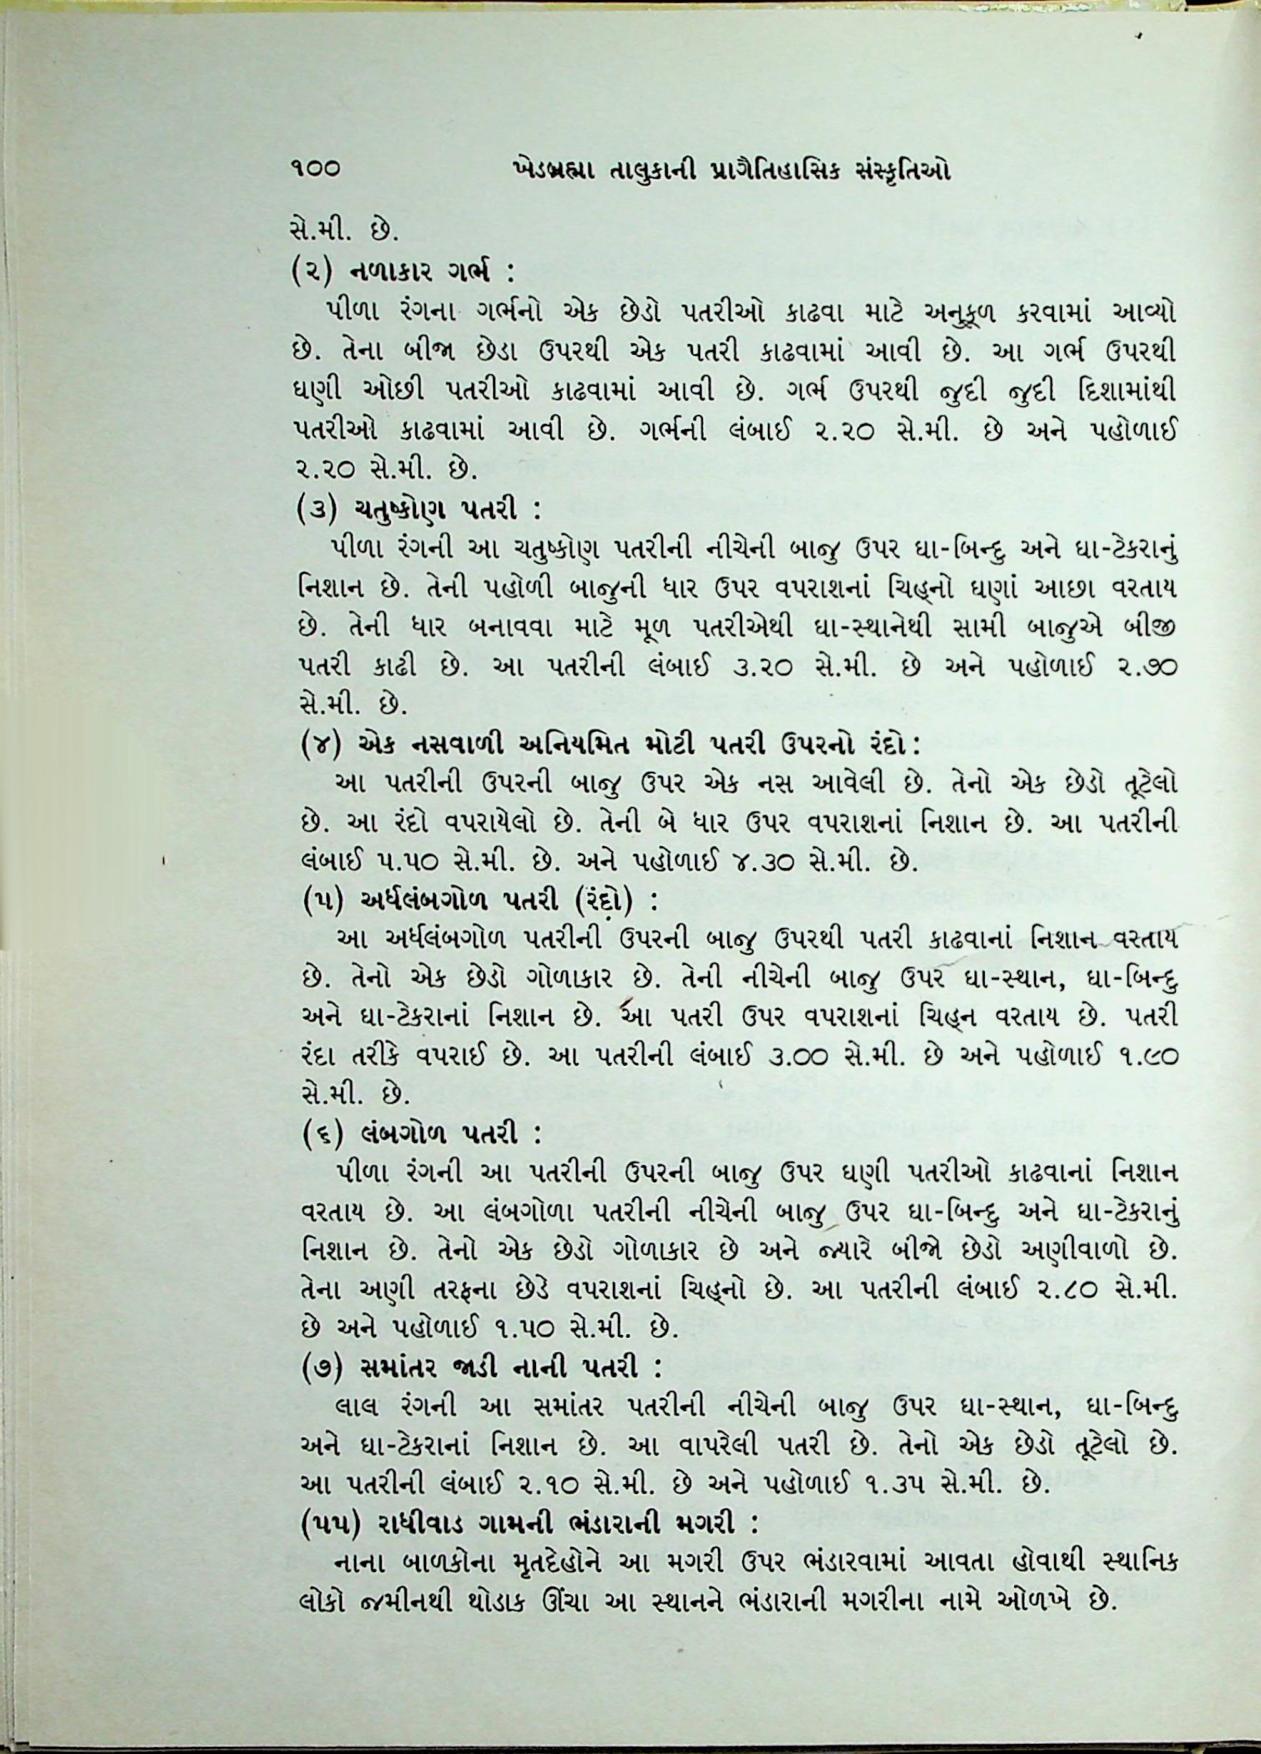 ૧૦૦ ખેડબ્રહ્મા તાલુકાની પ્રાગૈતિહાસિક સંસ્કૃતિઓ
સે.મી. છે.
(૨) નળાકાર ગર્ભ :
પીળા રંગના ગર્ભનો એક છેડો પતરીઓ કાઢવા માટે અનુકૂળ કરવામાં આવ્યો
છે. તેના બીજા છેડા ઉપરથી એક પતરી કાઢવામાં આવી છે. આ ગર્ભ ઉપરથી
ઘણી ઓછી પતરીઓ કાઢવામાં આવી છે. ગર્ભ ઉપરથી જુદી જુદી દિશામાંથી
પતરીઓ કાઢવામાં આવી છે. ગર્ભની લંબાઈ ૨.૨૦ સે.મી. છે અને પહોળાઈ
૨.૨૦ સે.મી. છે.
(૩) ચતુષ્કોણ પતરી :
પીળા રંગની આ ચતુષ્કોણ પતરીની નીચેની બાજુ ઉપર ઘા-બિન્દુ અને ઘા-ટેકરાનું
નિશાન છે. તેની પહોળી બાજુની ધાર ઉપર વપરાશનાં ચિહ્નો ઘણાં આછા વરતાય
છે. તેની ધાર બનાવવા માટે મૂળ પતરીએથી ઘા-સ્થાનેથી સામી બાજુએ બીજી
પતરી કાઢી છે. આ પતરીની લંબાઈ ૩.૨૦ સે.મી. છે અને પહોળાઈ ૨.૭૦
સે.મી. છે.
(૪) એક નસવાળી અનિયમિત મોટી પતરી ઉપરનો રંદો:
આ પતરીની ઉપરની બાજુ ઉપર એક નસ આવેલી છે. તેનો એક છેડો તૂટેલો
છે. આ રંદો વપરાયેલો છે. તેની બે ધાર ઉપર વપરાશનાં નિશાન છે. આ પતરીની
લંબાઈ ૫.૫૦ સે.મી. છે. અને પહોળાઈ ૪.૩૦ સે.મી. છે.
(૫) અર્ધલંબગોળ પતરી (રંદો) :
આ અર્ધલંબગોળ પતરીની ઉપરની બાજુ ઉપરથી પતરી કાઢવાનાં નિશાન વરતાય
છે. તેનો એક છેડો ગોળાકાર છે. તેની નીચેની બાજુ ઉપર ઘા-સ્થાન, ઘા-બિન્દુ
અને ઘા-ટેકરાનાં નિશાન છે. આ પતરી ઉપર વપરાશનાં ચિહ્ન વરતાય છે. પતરી
રંદા તરીકે વપરાઈ છે. આ પતરીની લંબાઈ ૩.૦૦ સે.મી. છે અને પહોળાઈ ૧.૯૦
સે.મી. છે.
(૬) લંબગોળ પતરી :
પીળા રંગની આ પતરીની ઉપરની બાજુ ઉપર ઘણી પતરીઓ કાઢવાનાં નિશાન
વરતાય છે. આ લંબગોળા પતરીની નીચેની બાજુ ઉપર ઘા-બિન્દુ અને ઘા-ટેકરાનું
નિશાન છે. તેનો એક છેડો ગોળાકાર છે અને જ્યારે બીજો છેડો અણીવાળો છે.
તેના અણી તરફના છેડે વપરાશનાં ચિહ્નો છે. આ પતરીની લંબાઈ ૨.૮૦ સે.મી.
છે અને પહોળાઈ ૧.૫૦ સે.મી. છે.
(૭) સમાંતર જાડી નાની પતરી :
લાલ રંગની આ સમાંતર પતરીની નીચેની બાજુ ઉપર ઘા-સ્થાન, ઘા-બિન્દુ
અને ઘા-ટેકરાનાં નિશાન છે. આ વાપરેલી પતરી છે. તેનો એક છેડો તૂટેલો છે.
આ પતરીની લંબાઈ ૨.૧૦ સે.મી. છે અને પહોળાઈ ૧.૩૫ સે.મી. છે.
(૫૫) રાધીવાડ ગામની ભંડારાની મગરી :
નાના બાળકોના મૃતદેહોને આ મગરી ઉપર ભંડારવામાં આવતા હોવાથી સ્થાનિક
લોકો જમીનથી થોડાક ઊંચા આ સ્થાનને ભંડારાની મગરીના નામે ઓળખે છે.